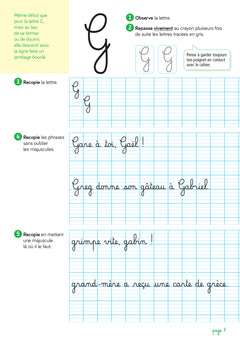 Même début que
pour la lettre C,
mais au lieu
de se fermer
ou de s'ouvrir,
elle descend sous
la ligne faire un
jambage bouclé.
G
1 Observe la lettre.
2 Repasse vivement au crayon plusieurs fois
de suite les lettres tracées en gris.
G G
Pense à garder toujours
ton poignet en contact
avec le cahier.
3 Recopie la lettre.
G
G
4 Recopie les phrases
sans oublier
les majuscules.
Gare à toi, Gaël !
Greg donne son gâteau à Gabriel.
5 Recopie en mettant
une majuscule
là où il le faut.
grimpe vite, gabin !
grand-mère a reçu une carte de grèce.
page 7